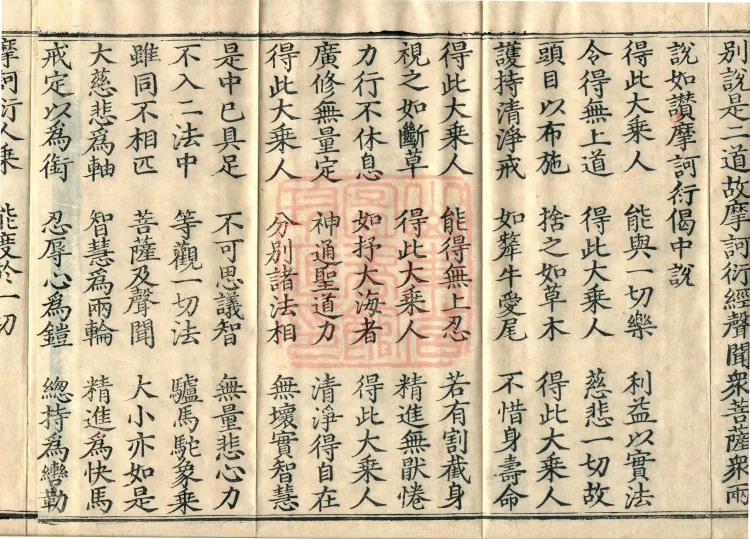 別說是二道故摩訶衍經聲聞衆菩薩衆兩
說如讃摩訶衍偈中說
得此大乘人 能與一切樂 利益以實法
令得無上道 得此大乘人 慈悲一切故
頭目以布施 捨之如草木 得此大乘人
護持清淨戒 如犛牛愛尾 不惜身壽命
得此大乘人 能得無上忍 若有割截身
視之如斷草 得此大乘人 精進無猒惓
力行不休息 如抒大海者 得此大乘人
廣修無量定 神通聖道力 清淨得自在
得此大乘人 分別諸法相 無壞實智慧
是中已具足 不可思議智 無量悲心力
不入二法中 等觀一切法 驢馬駝象乘
雖同不相匹 菩薩及聲聞 大小亦如是
大慈悲爲軸 智慧爲兩輪 精進爲快馬
戒定以爲銜 忍辱心爲鎧 總持爲轡勒
摩訶衍人乘 能度於一切